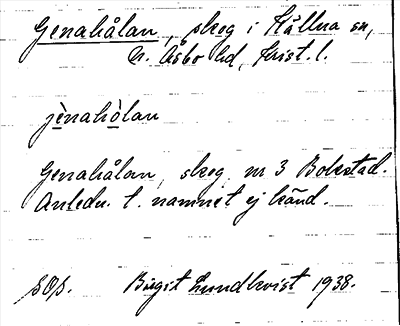 Genahålan, skog i Källna sn,
N. Åsbo hd, Krist. l.
jènahòlan
Genahålan, skog nr 3 Bokstad.
Anledn. t. namnet ej känd.
sOp. Birgit Lundkvist 1938.